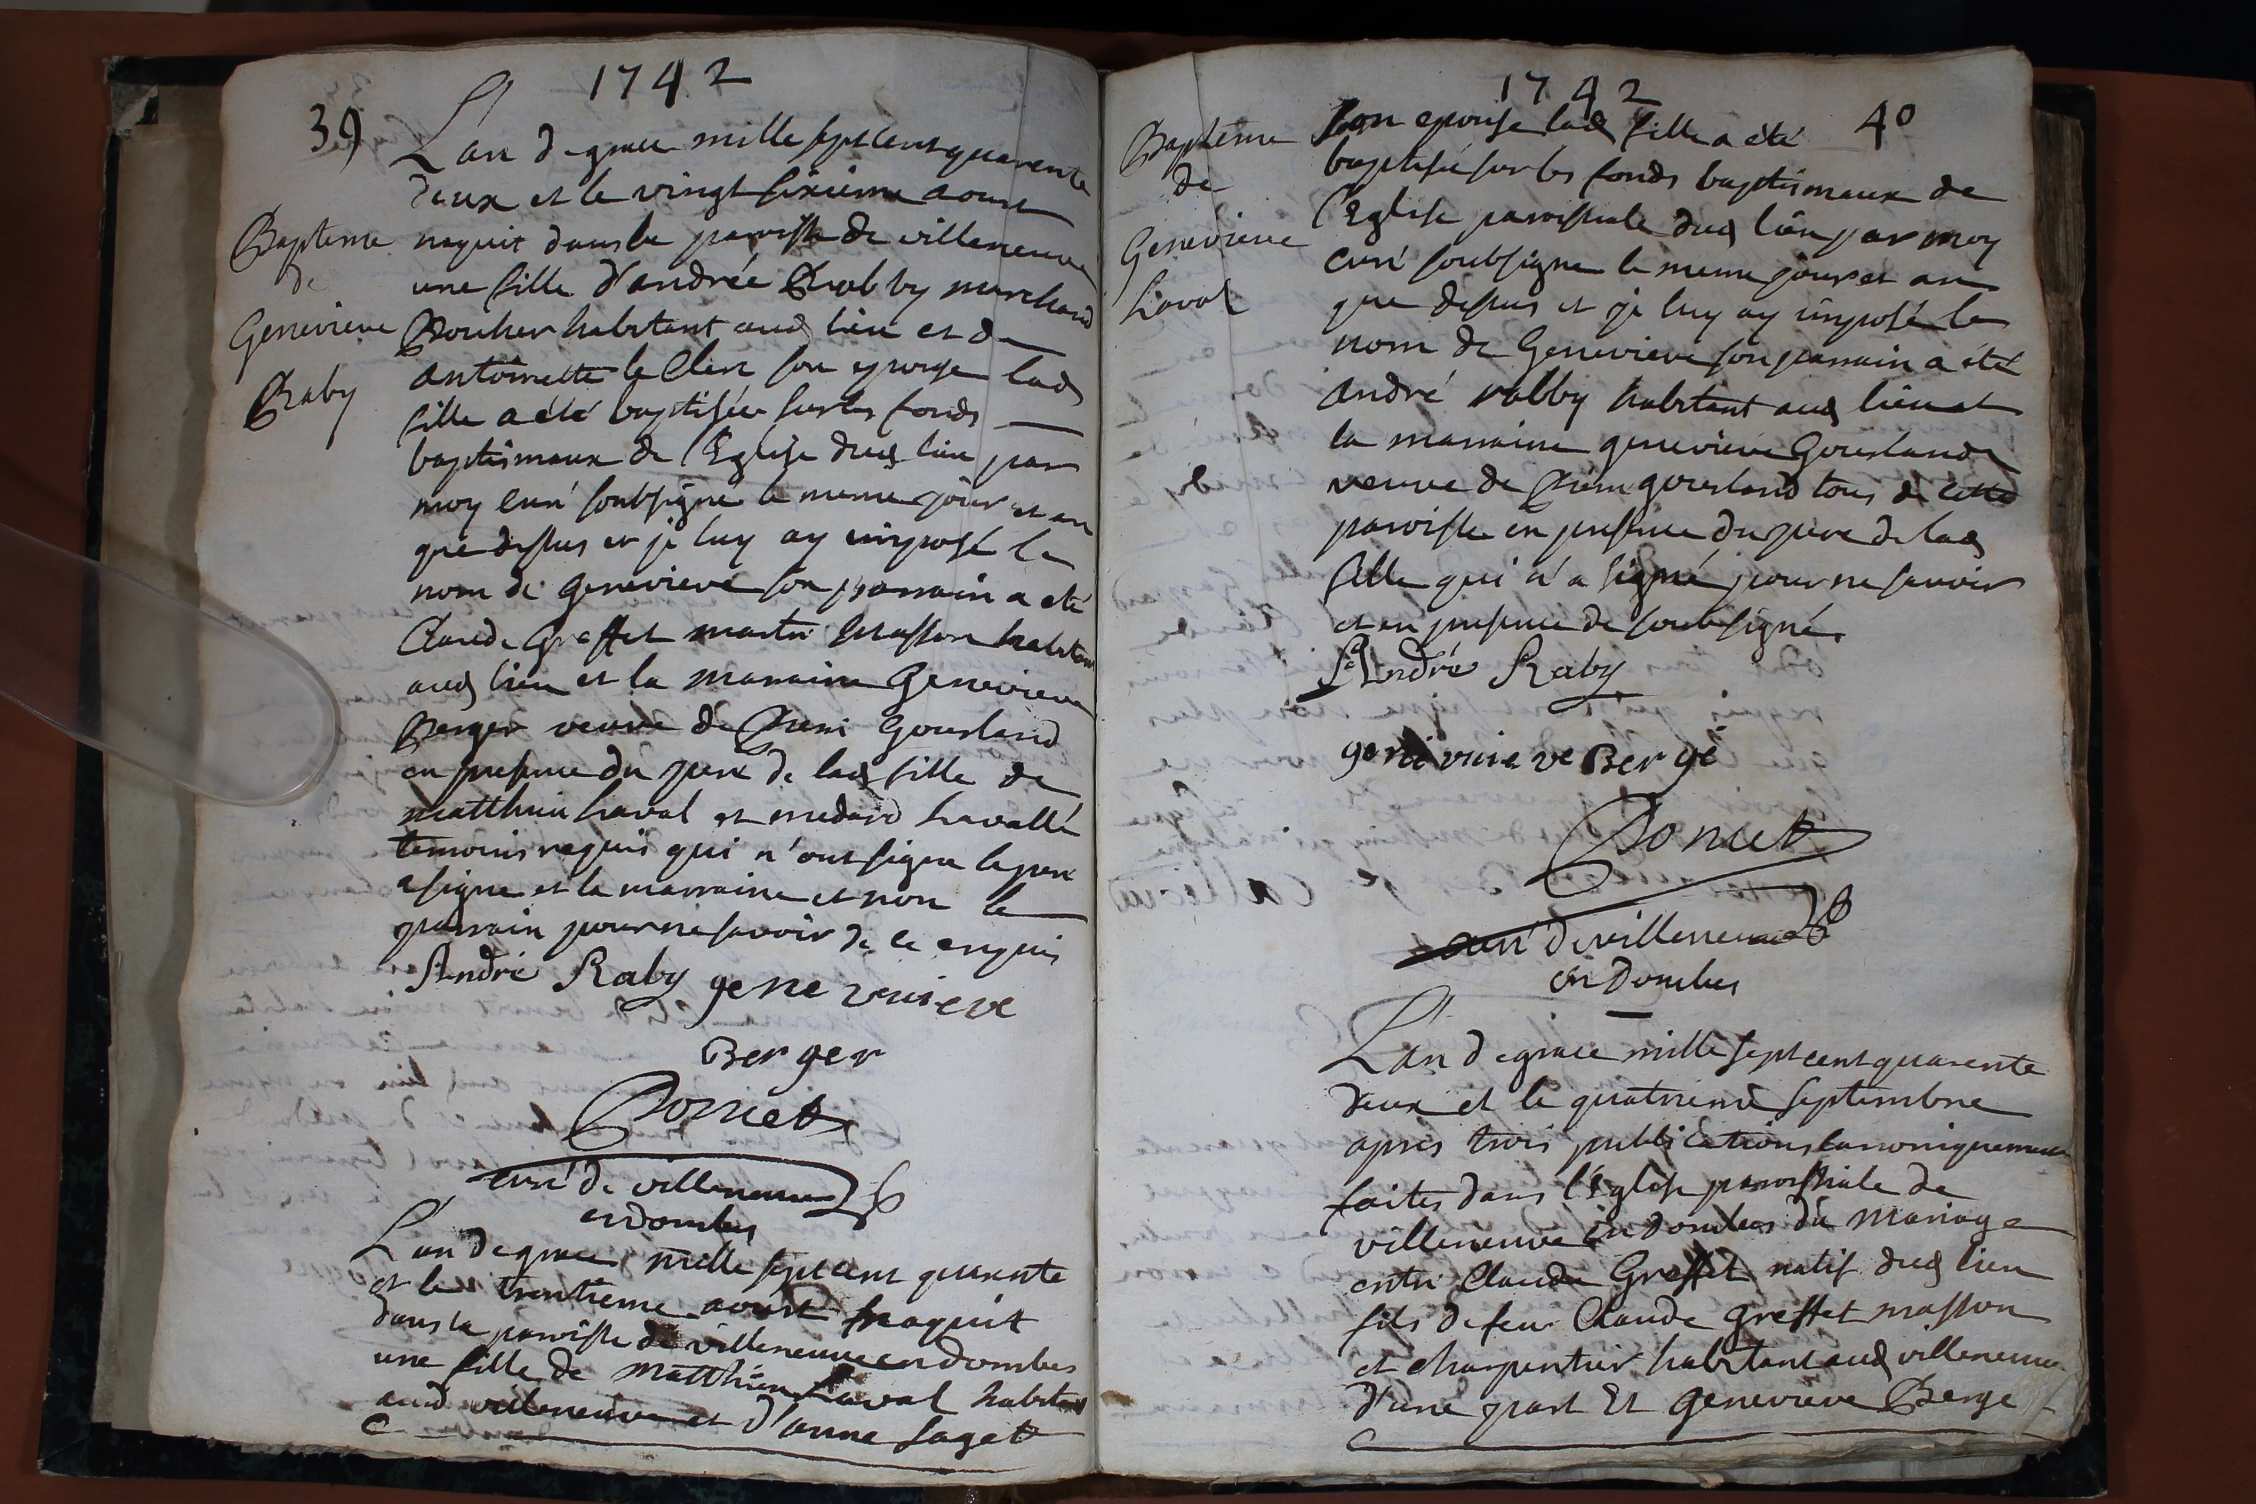 1742
39
L'an de grace mille sept cent quarente
deux et le vingt sixieme aoust
naquit dans la paroisse de villeneuve
une fille d'andrée Rabby marchand
Boucher habitant aud lieu et de
antoinette le Clerc son epouse lad
fille a été baptisée sur les fonds
baptismaux de l'Eglise dud lieu par
moy curé soubsigné le meme jour et an
que dessus et je luy ay imposé le
nom de Genevieve son parrain a eté
Claude Greffet maitre masson habitant
aud lieu et la marraine Genevieve
Berger veuve de Gourland
en presence du pere de lad fille de
matthieu Laval et medard Lavallé
temoins requis qui n'ont signe le pere
a signe et la marraine et non le
parrain pour ne savoir de ce enquis
Bapteme
de
Genevieve
Raby
André Raby genevuieve
Berger
Bonnet
curé de villeneuve
en dombes
L'an de grace mille sept cent quarente
et le trentieme aoust naquit
dans la paroisse de villeneuve en dombes
une fille de Matthieu Laval habitant
aud villeneuve et d'anne Saget
1742
40
Bapteme
de
Genevieve
Laval
son epouse lad fille a été
baptisée sur les fonds baptismaux de
l'Eglise paroissiale dud lieu par moy
curé soubsigne le meme jour et an
que dessus et je luy ay imposé le
nom de Genevieve son parrain a été
André rabby habitant aud lieu et
la marraine genevieve Gourland
veuve de gourland tous de cette
paroisse en presence du pere de lad
fille qui n'a signé pour ne savoir
et en presence de soubsignés
André Raby
genevuieve Bergé
Bonnet
curé de villeneuve
en Dombes
L'an de grace mille sept cent quarente
deux et le quatrieme septembre
apres trois publications canoniquement
faites dans l'Eglise paroissiale de
villeneuve en dombes du mariage
entre Claude Greffet natif dud lieu
fils de feu Claude Greffet masson
et charpentier habitant aud villeneuve
d'une part Et Genevieve Berge